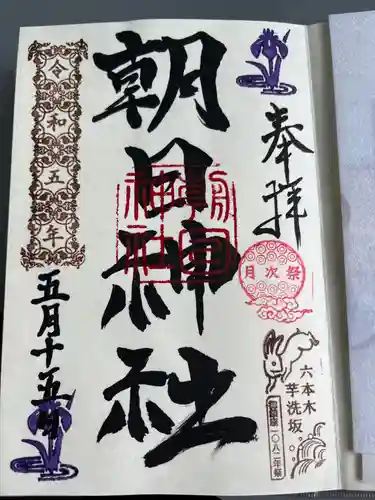 奉拝
月次祭
六本木
芋洗坂
一〇八二年祭
朝日神社
朝日神社
令和五年
五月十五日